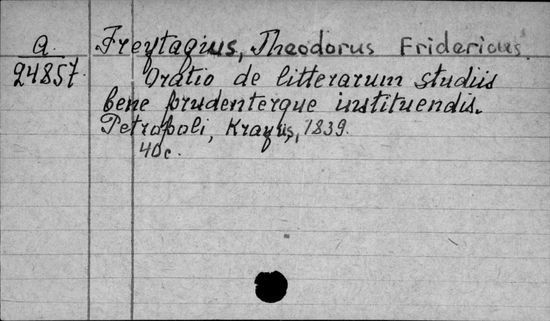 a. Freytagius, Theodorus Fridericus.
24857. Oratio de litterarum studiis
bene prudenterque instituendis.
Petropoli, Krayus, 1839.
40c.